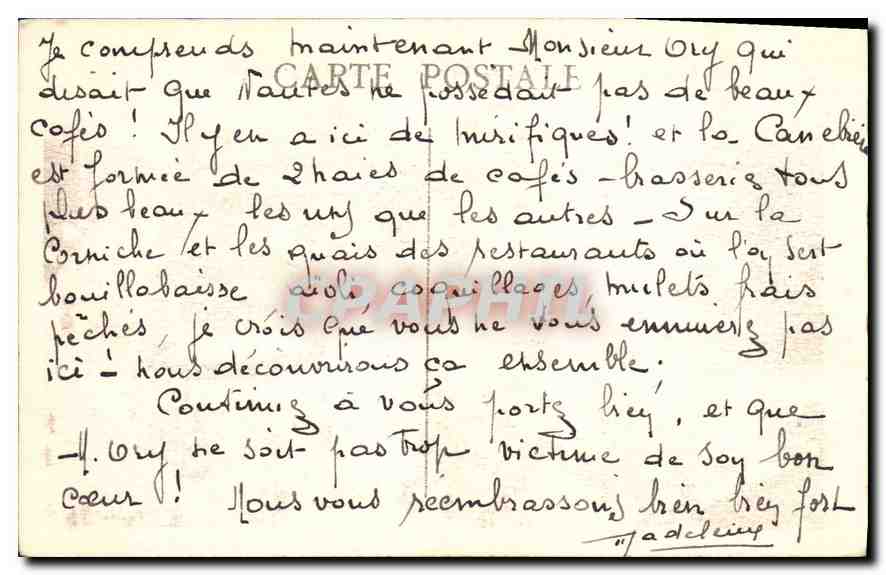 Je comprends maintenant Monsieur Ory qui
CARTE POSTALE
disait que Nantes ne possédait pas de beaux
cafés ! Il y en a ici de mirifiques ! et la Canebière
est formée de 2 haies de cafés - brasseries tous
plus beaux les uns que les autres - Sur la
Corniche et les quais des restaurants où l'on sert
bouillabaisse aïoli, coquillages, mulets frais
CPAPHIL
pêchés, je crois que vous ne vous ennuierez pas
ici - nous découvrirons ça ensemble.
Continuez à vous portez bien, et que
M. Ory ne soit pas trop victime de son bon
cœur ! Nous vous réembrassons bien bien fort
Madeleine